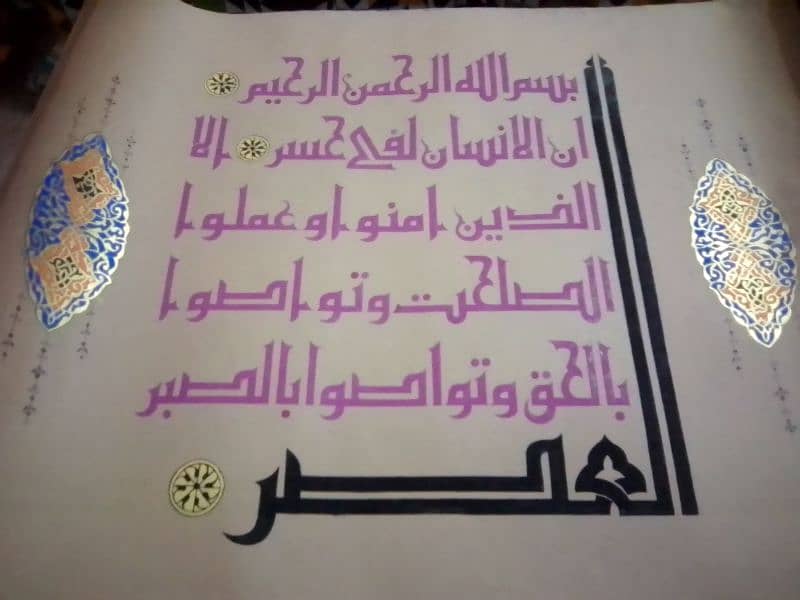 بسم الله الرحمن الرحيم
ان الانسان لفي خسر الا
الذين امنوا وعملوا
الصلحت وتواصوا
بالحق وتواصوا بالصبر
العصر